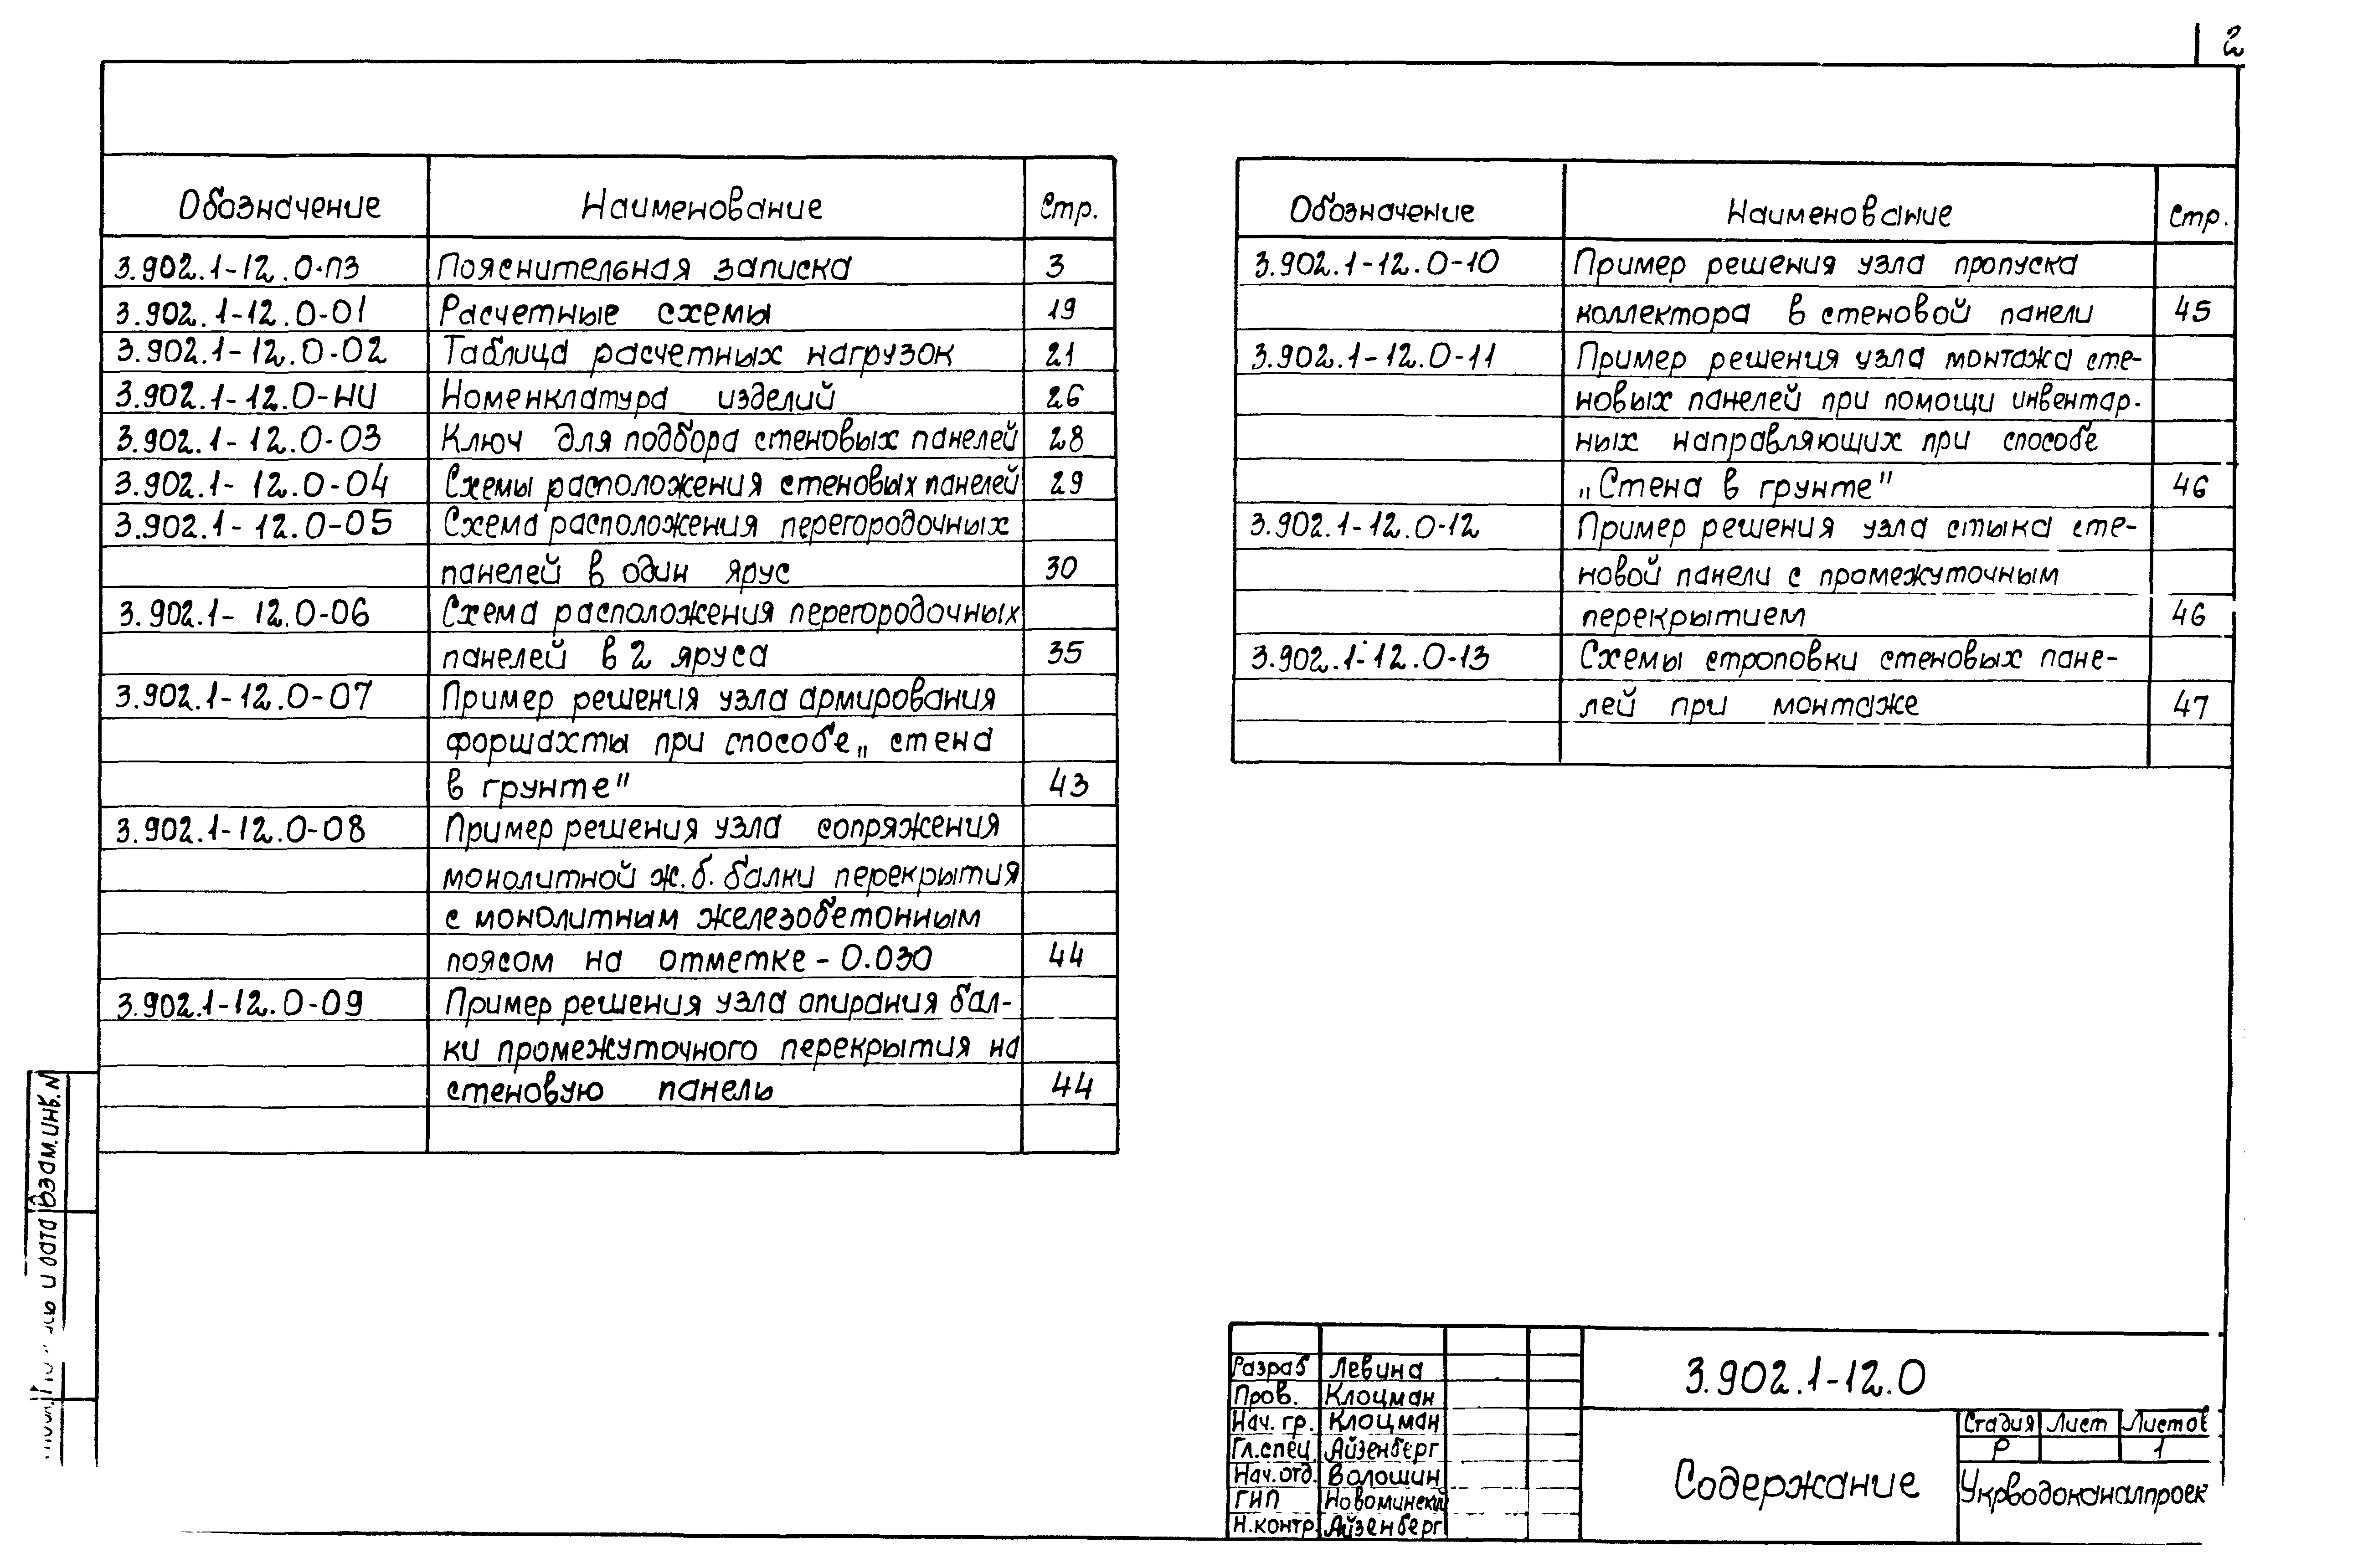 2
Обозначение Наименование Стр.
3.902.1-12.0-ПЗ Пояснительная записка 3
3.902.1-12.0-01 Расчетные схемы 19
3.902.1-12.0-02 Таблица расчетных нагрузок 21
3.902.1-12.0-НИ Номенклатура изделий 26
3.902.1-12.0-03 Ключ для подбора стеновых панелей 28
3.902.1-12.0-04 Схемы расположения стеновых панелей 29
3.902.1-12.0-05 Схема расположения перегородочных
панелей в один ярус 30
3.902.1-12.0-06 Схема расположения перегородочных
панелей в 2 яруса 35
3.902.1-12.0-07 Пример решения узла армирования
форшахты при способе „стена
в грунте" 43
3.902.1-12.0-08 Пример решения узла сопряжения
монолитной ж.б. балки перекрытия
с монолитным железобетонным
поясом на отметке -0.030 44
3.902.1-12.0-09 Пример решения узла опирания бал-
ки промежуточного перекрытия на
стеновую панель 44
Обозначение Наименование Стр.
3.902.1-12.0-10 Пример решения узла пропуска
коллектора в стеновой панели 45
3.902.1-12.0-11 Пример решения узла монтажа сте-
новых панелей при помощи инвентар-
ных направляющих при способе
„Стена в грунте" 46
3.902.1-12.0-12 Пример решения узла стыка сте-
новой панели с промежуточным
перекрытием 46
3.902.1-12.0-13 Схемы строповки стеновых пане-
лей при монтаже 47
Взам.инв.N
и дата
Разраб Левина
Пров. Клоцман
Нач. гр. Клоцман
Гл.спец. Айзенберг
Нач.отд. Волошин
ГИП Новоминский
Н.контр. Айзенберг
3.902.1-12.0
Содержание
Стадия Лист Листов
Р 1
Укрводоканалпроек